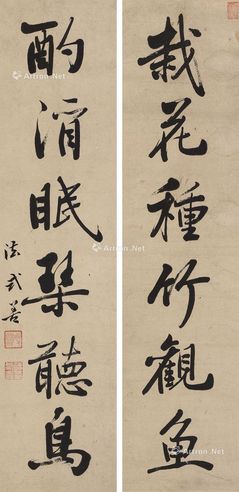 栽花種竹觀魚
酌酒眠琴聽鳥
法式善
Artron.Net
Artron.Net